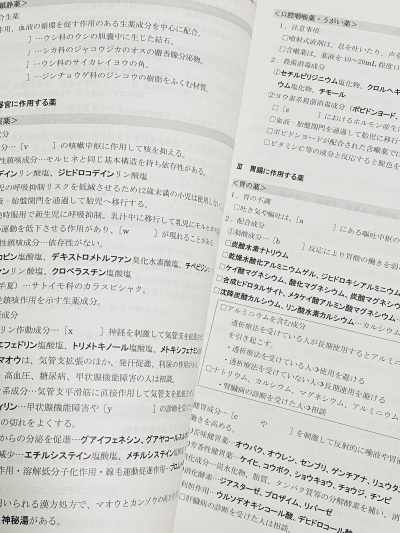 鎮静薬＞
合生薬
作用、血液の循環を促す作用のある生薬成分を中心に配合。
］…ウシ科のウシの胆嚢中に生じた結石。
］…シカ科のジャコウジカのオスの麝香腺分泌物。
］…ウシ科のサイカレイヨウの角。
］…ジンチョウゲ科のジンコウの樹脂をふくむ材質。
器官に作用する薬
分…［v　　　］の咳嗽中枢に作用して咳を抑える。
性鎮咳成分…モルヒネと同じ基本構造を持ち依存性がある。
デインリン酸塩、ジヒドロコデインリン酸塩
児の呼吸抑制リスクを低減させるために12歳未満の小児は使用しない
・胎盤関門を通過して胎児へ移行する。
運動を低下させる作用があり、［w　　　］が現れることがある
性鎮咳成分…依存性がない。
塩酸塩、デキストロメトルファン臭化水素酸塩、
リン酸塩、クロペラスチン塩酸塩
半夏）…サトイモ科のカラスビシャク。
鎮咳作用を示す生薬成分。
リン作動成分…［x　　　］神経を刺激して気管支を
エフェドリン塩酸塩、トリメトキノール塩酸塩、
マオウは、気管支拡張のほか、発汗促進、利尿の作用
高血圧、糖尿病、甲状腺機能障害の人は相談。
ン系成分…気管支平滑筋に直接作用して
ィリン…甲状腺機能障害や［y　　　］の診断を
の切れをよくする。
からの分泌を促進…グアイフェネシン、
減少…エチルシステイン塩酸塩、メチルシステイン塩酸塩
作用・溶解低分子化作用・線毛運動促進作用…
用いられる漢方処方で、マオウとカンゾウの
、神秘湯がある。
＜口腔咽喉薬・うがい薬＞
1．注意事項
□噴射式液剤は、息を吐いたり、声を
□含嗽薬は、薬液を10～20mL程度口
2．殺菌消毒成分
①セチルピリジニウム塩化物、クロルヘキ
ウム塩化物、チモール
②ヨウ素系殺菌消毒成分［ポビドンヨード、
□［z　　　］におけるホルモン産生に
□血液・胎盤関門を通過して胎児に移行
□ポビドンヨードが配合された含嗽薬では
□ビタミンC等の成分と反応すると脱色を
Ⅲ　胃腸に作用する薬
＜胃の薬＞
1．胃の不調
□吐き気や嘔吐は、［a　　　］にある嘔吐中枢の
2．配合成分
①制酸成分…［b　　　］反応により胃酸の働きを弱
□炭酸水素ナトリウム
□乾燥水酸化アルミニウムゲル、ジヒドロキシアルミニウム
□ケイ酸マグネシウム、酸化マグネシウム、炭酸マグネシウム
□合成ヒドロタルサイト、メタケイ酸アルミン酸マグネシウム
□沈降炭酸カルシウム、リン酸水素カルシウム…カルシウム
□アルミニウムを含む成分
・透析療法を受けている人が長期使用するとアルミニ
を引き起こす。
・透析療法を受けている人⇒使用を避ける
・透析療法を受けていない人⇒長期連用を避ける
□ナトリウム、カルシウム、マグネシウム、アルミニウム
・腎臓病の診断を受けた人⇒相談
健胃成分…［c　　　や　　　］を刺激して反射的に唾液や胃液
働きを高める。
苦味健胃薬…オウバク、オウレン、センブリ、ゲンチアナ、リュウタン
芳香性健胃薬…ケイヒ、コウボク、ショウキョウ、チョウジ、チンピ
消化成分…炭水化物、脂質、タンパク質等の分解酵素を補い、消
…ジアスターゼ、プロザイム、リパーゼ
利胆作用…ウルソデオキシコール酸、デヒドロコール酸
□肝臓病の診断を受けた人は相談。